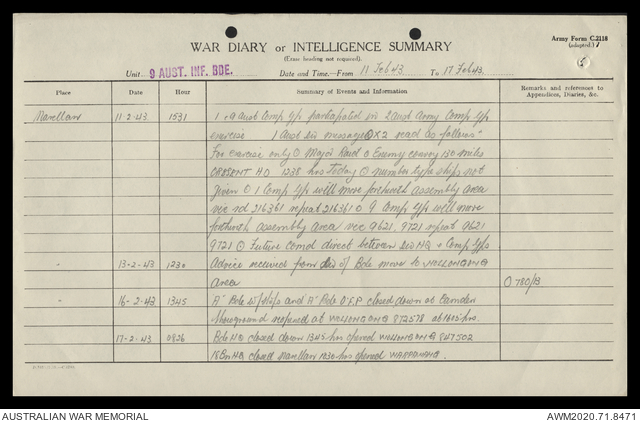 Army Form C.2118
(adapted)
WAR DIARY or INTELLIGENCE SUMMARY
(Erase heading not required).
Unit 9 AUST. INF. BDE. Date and Time.—From 11 Feb 43 To 17 Feb 43.
Place Date Hour Summary of Events and Information Remarks and references to Appendices, Diaries, &c.
Narellan 11-2-43 1531 1 & 9 Aust Comp Gps participated in 2 Aust Army Comp Gp
exercise 1 Aust Div message OX2 read as follows"
For exercise only O Major Raid O Enemy convoy 130 miles
ORBSENT HD 1238 hrs today O number type ships not
given O 1 Comp Gp will move forthwith assembly area
vic rd 216361 repeat 216361 O 9 Comp Gp will move
forthwith assembly area vic 9621, 9721 repeat 9621
9721 O Future comd direct between Div HQ + Comp Gps
" 13-2-43 1230 Advice received from Div of Bde move to WOLLONGONG
area O 780/B
" 16-2-43 1345 'A' Bde Wkshops and 'A' Bde O.F.P closed down at Camden
Showground reopened at WOLLONGONG 872578 at 1605 hrs.
17-2-43 0926 Bde HQ closed down 1345 hrs opened WOLLONGONG 847502
18 Bn HQ closed Narellan 1230 hrs opened
AUSTRALIAN WAR MEMORIAL
AWM2020.71.8471